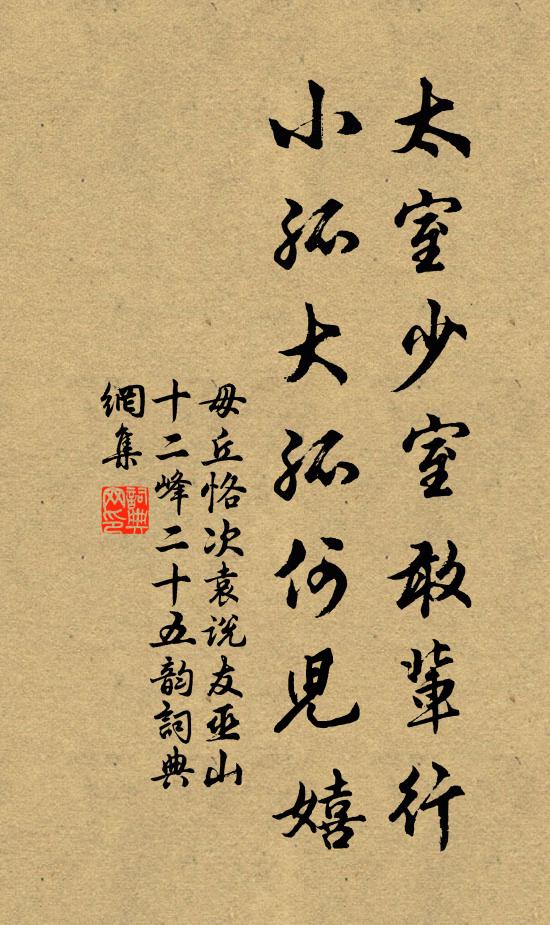 太室少室敢輩行
小孤大孤何兒嬉
毋丘恪次袁说友巫山
十二峰二十五韵詞典
網集
詞典
网印